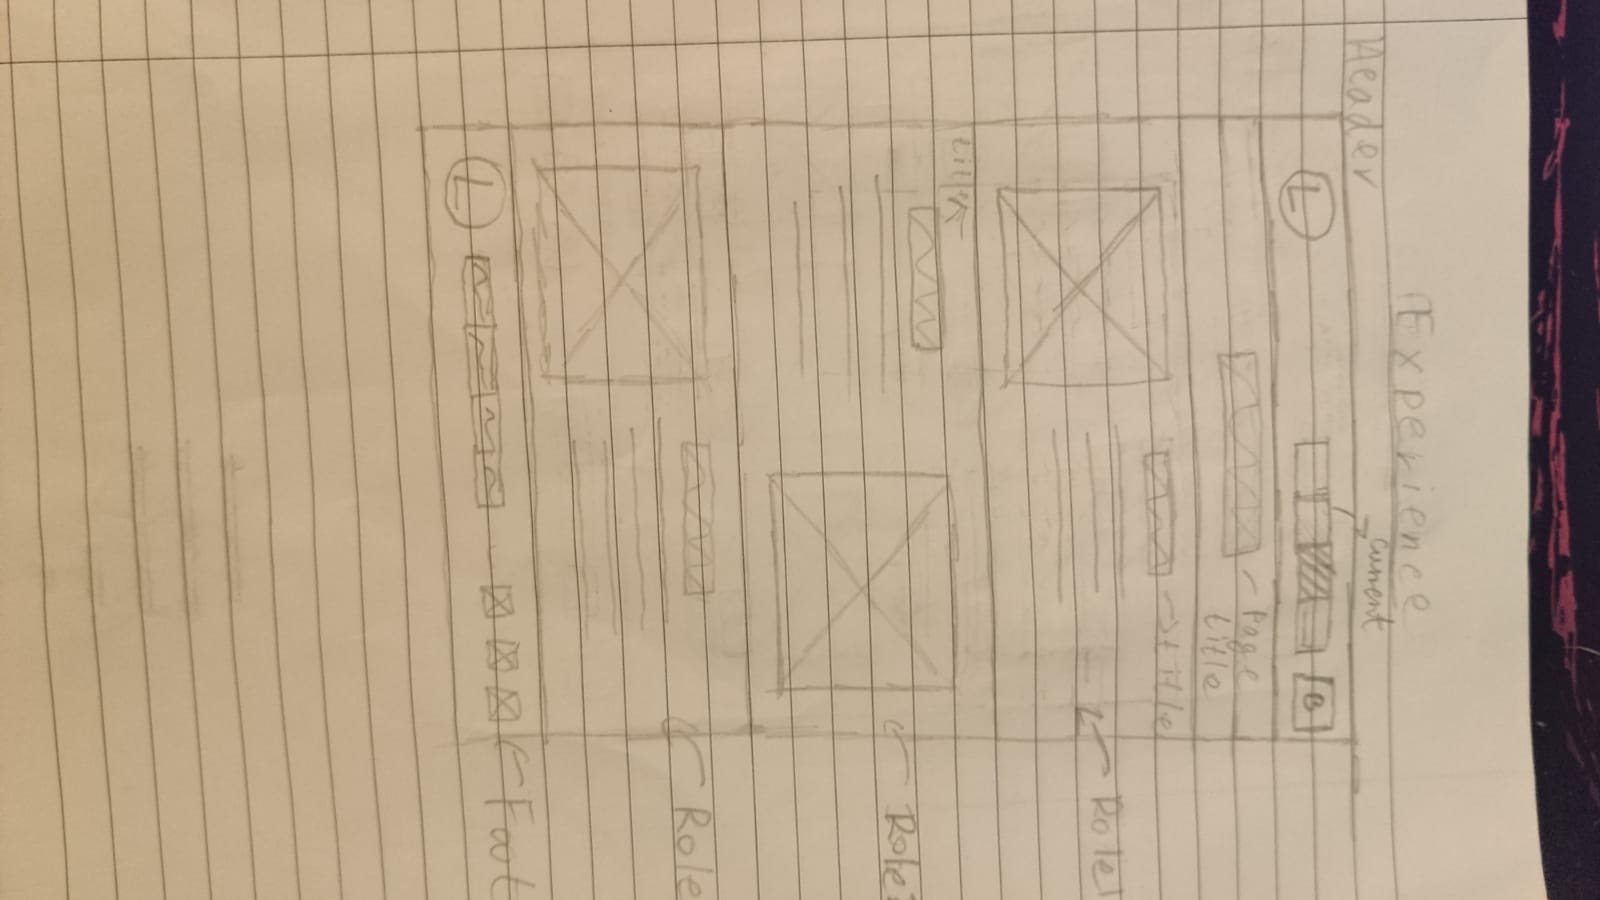 Experience
Header
current
L
B
Page
title
title
Role1
title
Role2
Role
L
Foot